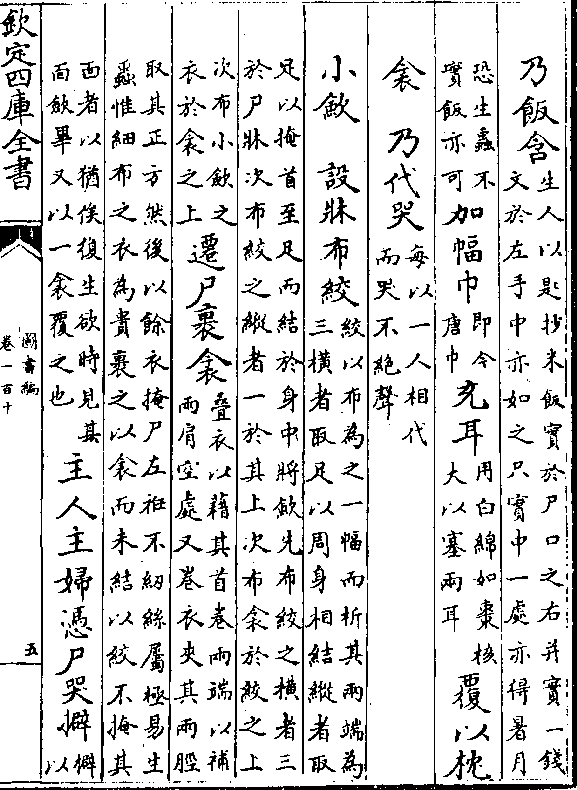 乃飯含生人以匙抄米飯實於尸口之右并實一錢
文於左手中亦如之只實中一處亦得暑月
恐生蟲不
實飯亦可加幅巾即今
唐巾充耳用白綿如棗核
大以塞兩耳覆以枕
衾 乃代哭每以一人相代
而哭不絕聲
小斂 設牀布絞絞以布為之一幅而析其兩端為
三橫者取足以周身相結縱者取
足以掩首至足而結於身中將斂先布絞之橫者三
於尸牀次布絞之縱者一於其上次布衾於絞之上
次布小斂之
衣於衾之上遷尸裹衾疊衣以藉其首卷兩端以補
兩肩空處又卷衣夾其兩脛
取其正方然後以餘衣掩尸左袵不紐絲屬極易生
蟲惟細布之衣為貴裹之以衾而未結以絞不掩其
面者以猶俟復生欲時見其
面斂畢又以一衾覆之也主人主婦憑尸哭擗擗
以
欽定四庫全書
圖書編
卷一百十
五